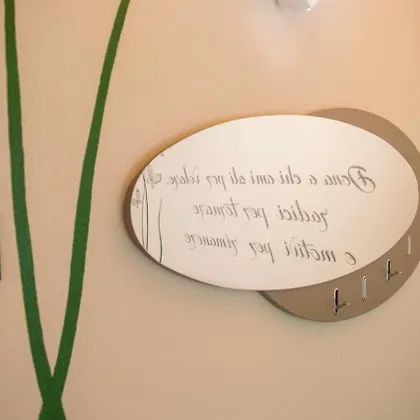 Dona a chi ami ali per volare,
radici per tornare
e motivi per rimanere